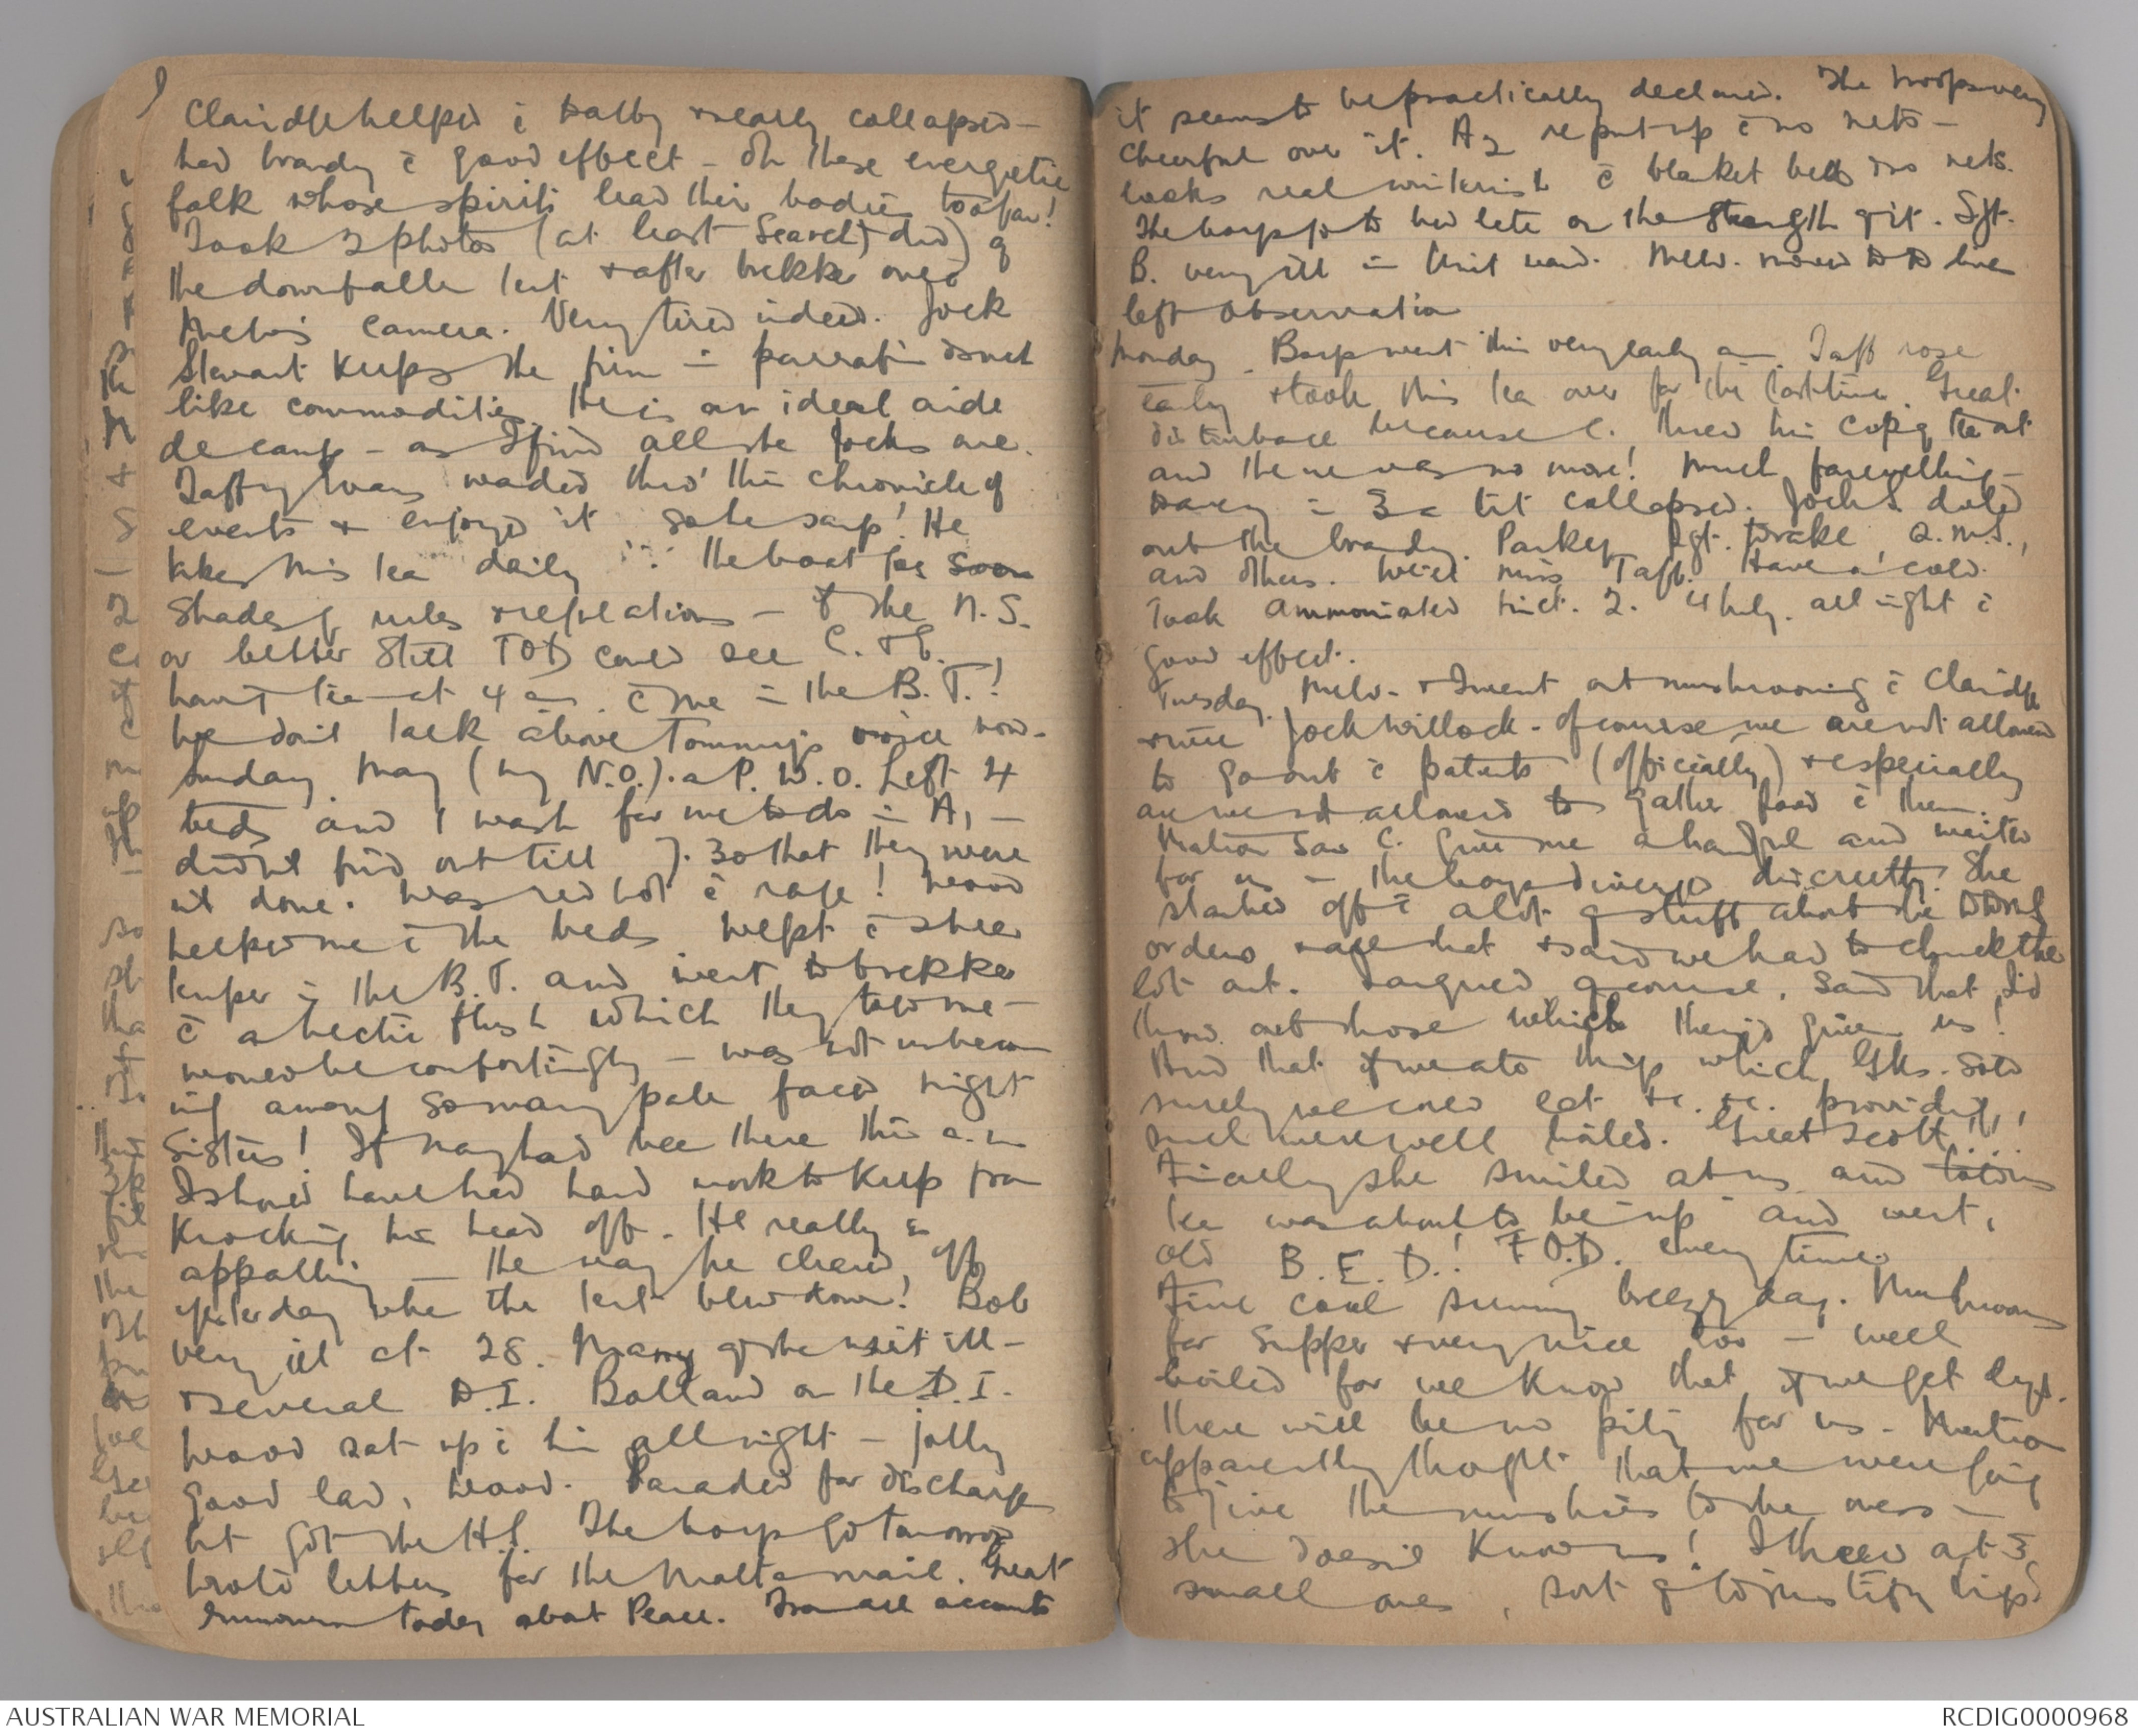 Claridge helped c̄ Dalby & nearly collapsed -
had brandy c̄ good effect - Oh these energetic
folk whose spirits lead their bodies too far!
Took 3 photos (at least Searell did) of
the downfallen tent & after brekker once
Melv's camera. Very tired indeed. Jock
Stewart keeps the firm in parrafin & such
like commodities. He is an ideal aide
de camp - as I find all the Jocks are.
Taffy Evans waded thro' this chronicle of
events & enjoyed it so he says! He
takes his tea daily the boat
Shades of rules & regulations - if the N.S.
or better still TOD could see C. & E.
having tea at 4 am. c̄ me in the B.T.!
We don't talk above Tommy's voice now.
Sunday May (my N.O.). a P.W.O. Left 4
beds and 1 wash for me to do in A1 -
didn't find out till 7.30 that they were
not done. Was red hot c̄ rage! Wood
helped me c̄ the beds. Wept c̄ sheer
temper in the B.T. and went to brekker
c̄ a hectic flush which they told me -
comfortingly - was not unbecom
ing among so many pale faced night
Sisters! If May had been there this a.m.
I should have had hard work to keep from
knocking his head off. He really is
appalling - the way he cleared off
yesterday when the tent blew down! Bob
very ill at 28. Many of the unit ill -
& several D.I. Bolland on the D.I.
Wood sat up c̄ him all night - jolly
good lad, Wood. Paraded for discharge
but got the H.S. The boys go tomorrow
Wrote letters for the Malta mail. Great
rumours today about Peace. From all accounts
it seems to be practically declared. The troops very
cheerful over it. A2 re put up c̄ no nets -
looks real winterish c̄ blanket beds & no nets.
The boys got to bed late on the strength of it. Sgt.
B. very ill in Unit ward. Melv. moved to D line
left Observation
Monday. Boys went this very early am. Taff rose
early & took his tea over for the last time. Great
disturbance because C. threw his cup of tea out
and there was no more! Much farewelling -
Davey in 3 a bit collapsed. Jock S. doled
out the brandy. Parkes, Sgt. Drake, Q.M.S.,
and others. We'll miss Taff. Have a cold.
Took Ammoniated tinct. 2. 4 hrly. all night c̄
good effect.
Tuesday. Melv. & I went out mushrooming c̄ Claridge
& nice Jock Willock - of course we are not allowed
to go out c̄ patients (officially) & especially
are we not allowed to gather food c̄ them.
Matron saw C. give me a handful and waited
for us - the boys diverged discreetly. She
started off c̄ a lot of stuff about the DDMS
orders & said we had to chuck the
lot out. I argued of course. Said that I'd
throw out those which they'd given us!
And that if we ate things which Gks. sold
surely we could eat &c. &c. providing
such were well boiled. Great Scott!!!
Finally she smiled at us and told us
tea was about to be "up" and went.
Old B.E.D.! F.O.D. every time.
Fine cool sunny breezy day. Mushrooms
for supper & very nice too - well
boiled for we know that if we get dys.
there will be no pity for us. Matron
apparently thought that we were going
to give the mushies to the mess -
she doesn't know us! I threw out 3
small ones, sort of to justify lip.
AUSTRALIAN WAR MEMORIAL
RCDIG0000968